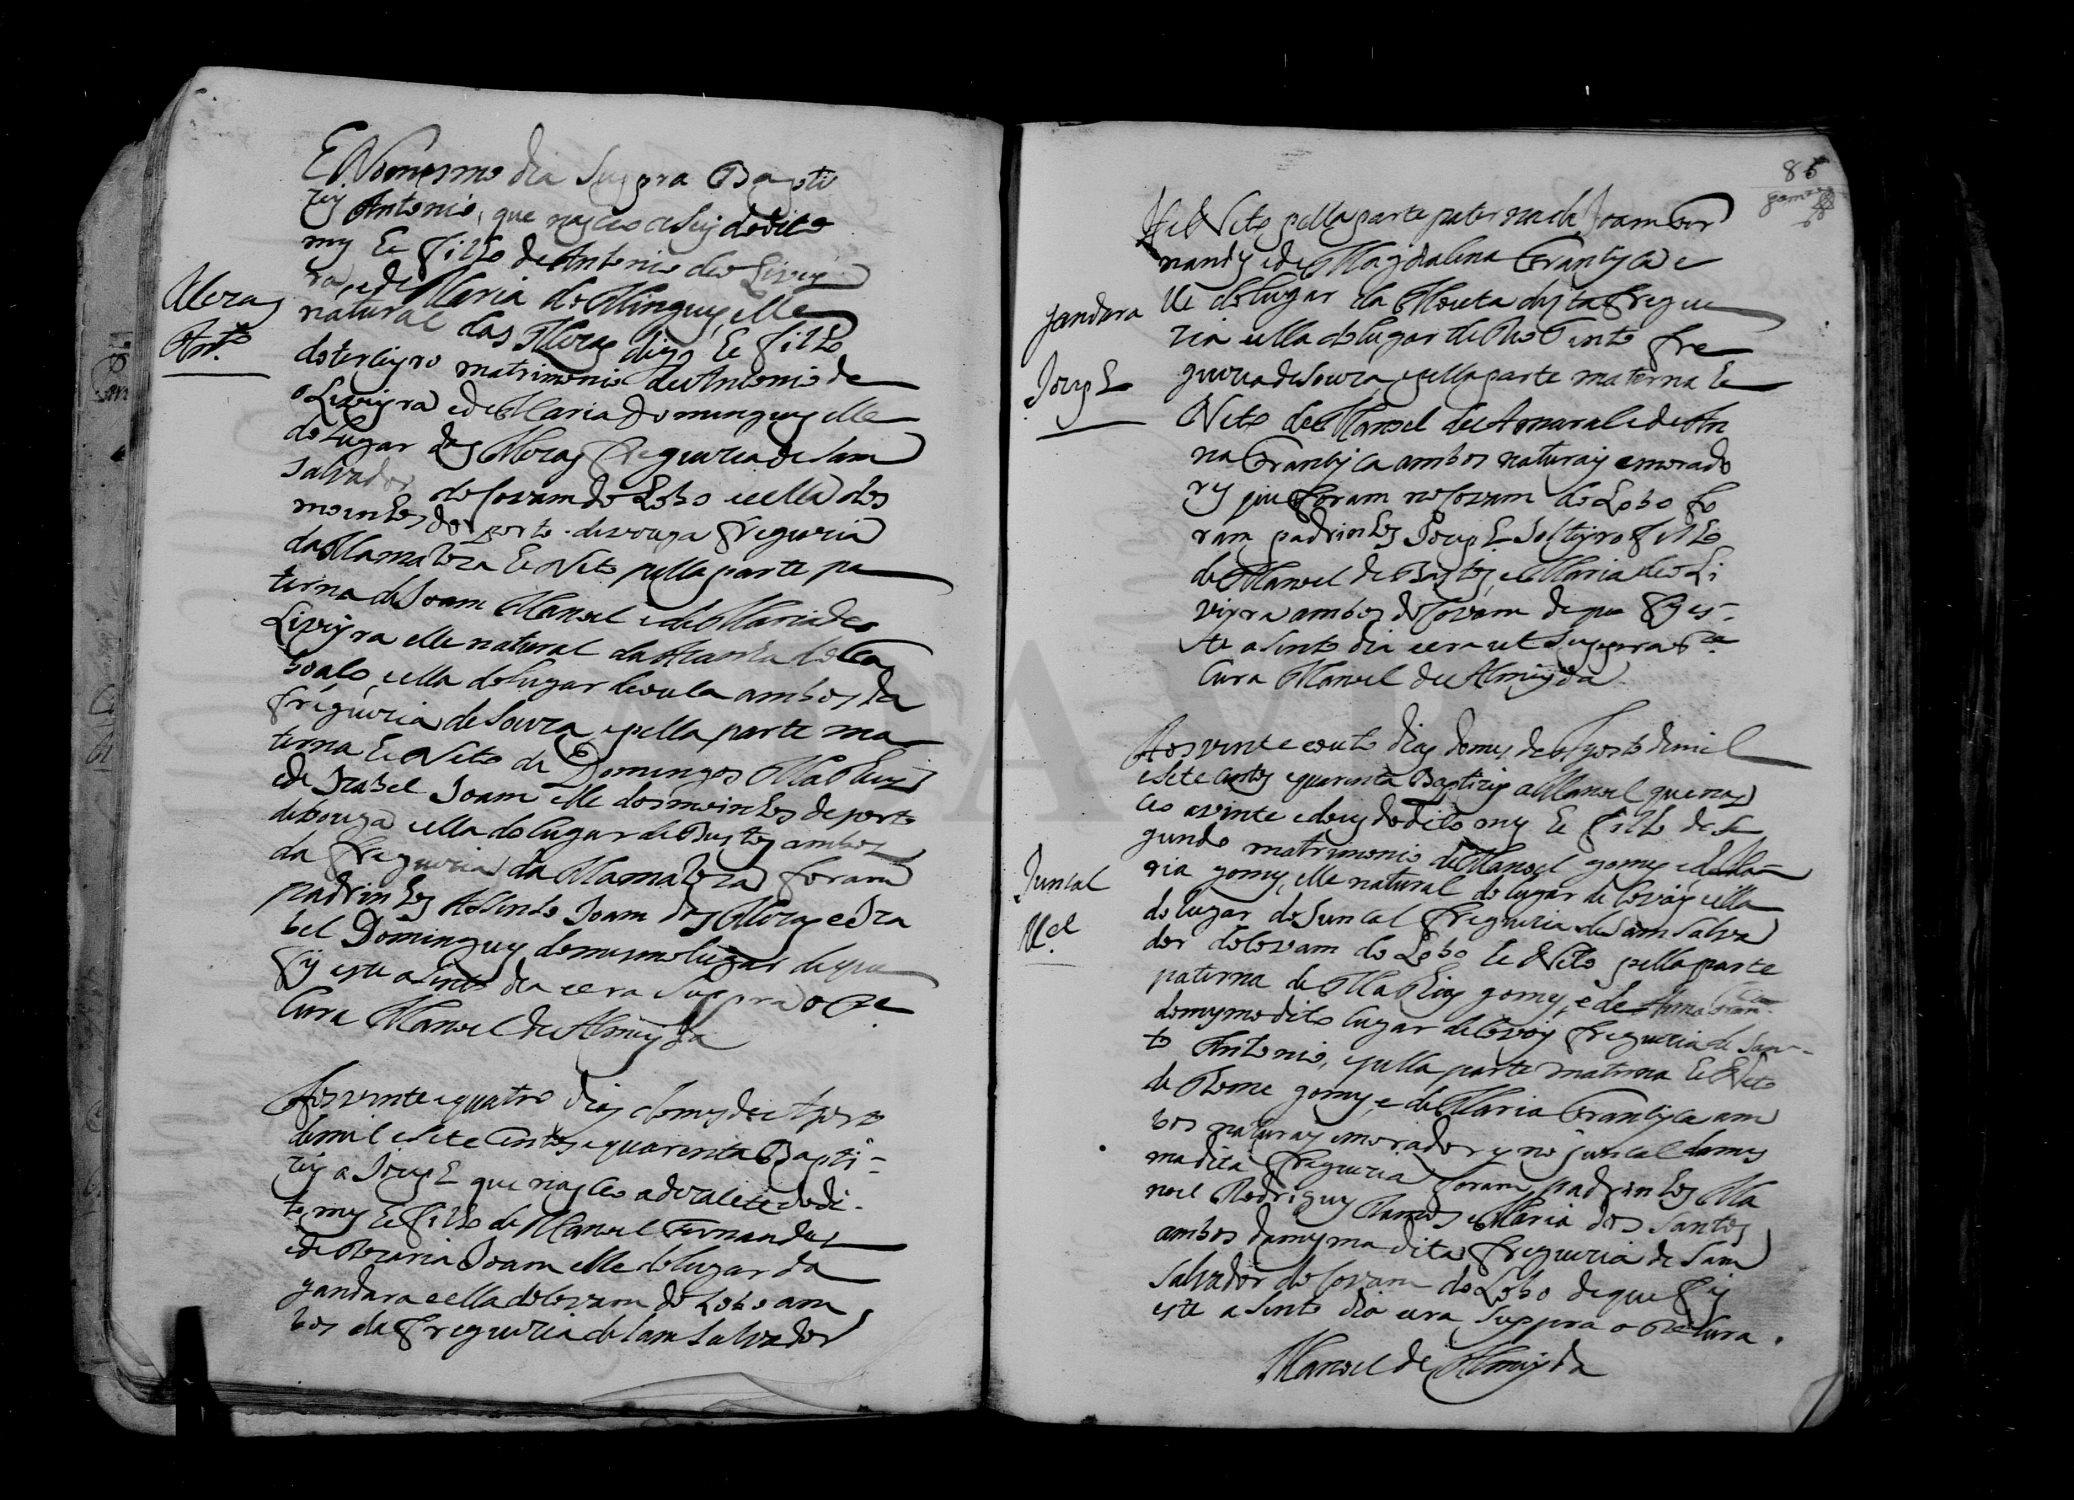 E No mesmo dia Suppra Bapti
zey Antonio, que nasceo a seis do dito
mes he filho de Antonio de oLivey
ra, e de Maria do Minguez, elle
natural das Moras digo he filho
do terceyro matrimonio de Antonio de
oLiveyra e de Maria Dominguez elle
do lugar das Moras freguezia de Sam
Salvador do Covam do Lobo e ella dos
moinhos do porto de vouga freguezia
da Mamaroza he Neto pella parte pa
terna de Joam Manoel e de Maria de o
Liveyra elle natural da
e ella do lugar de ambos da
freguezia de Souza, e pella parte ma
terna he Neto de Domingos Matheus
e de Izabel Joam elle dos moinhos de porto
de vouga e ella do lugar de Bustos ambos
da freguezia da Mamaroza foram
padrinhos Joam das Moras e Iza
bel Dominguez do mesmo lugar de que
fis este asento dia e era Suppra o Pe
Cura Manoel de Almeyda
Moras
Ant.º
Aos vinte e quatro dias do mes de Agosto
de mil e sete centos e quarenta Bapti-
zey a Joseph que nasceo a dezasete do di-
to mes he filho de Manoel Fernandes
e de Joam elle do lugar da
gandara e ella do Covam do Lobo am
bos da freguezia de Sam Salvador
85
he Neto pella parte paterna de Joam Fer
nandes e de Magdalena Francisca e
lle do lugar da Mouta desta fregue
zia e ella do lugar de Rio Tinto fre
guezia de Souza, e pella parte materna he
Neto de Manoel de Amaral e de An
na Francisca ambos naturais e morado
res que foram no Covam do Lobo fo
ram padrinhos Joseph Solteyro filho
de Manoel de Bastos, e Maria de oLi
veyra ambos do Covam de que fis es-
te asento dia e era ut Suppra o Pe
Cura Manoel de Almeyda
gandara
Joseph
Aos vinte e outo dias do mes de Agosto de mil
e sete centos e quarenta Baptizey a Manoel que nas
ceo a vinte e dous do dito mes he filho de se
gundo matrimonio de Manoel gomes e de Ma
ria gomes, elle natural do lugar de Covões e ella
do lugar do Juncal freguezia de Sam Salva
dor do Covam do Lobo he Neto pella parte
paterna de Matheus gomes, e de Anna Fran.ca
do mesmo dito lugar de Covões freguezia de San-
to Antonio, e pella parte materna he Neto
de Thome gomes, e de Maria Francisca am
bos naturais e moradores no juncal da mes
ma dita freguezia foram padrinhos Ma
noel Rodriguez Ramos e Maria dos Santos
ambos da mesma dita freguezia de Sam
Salvador do Covam do Lobo de que fis
este asento dia e era Suppra o Pe Cura
Manoel de Almeyda
Juncal
M.el